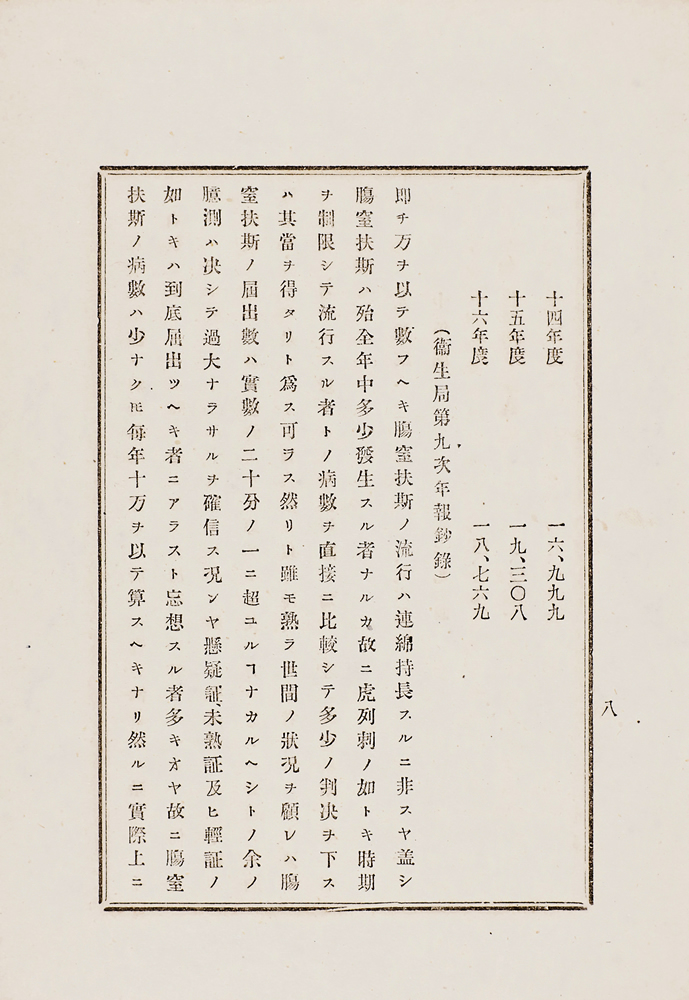 八
十四年度 一六、九九九
十五年度 一九、三〇八
十六年度 一八、七六九
（衞生局第九次年報鈔錄）
卽チ万ヲ以テ數フヘキ膓窒扶斯ノ流行ハ連綿持長スルニ非スヤ盖シ
膓窒扶斯ハ殆全年中多少發生スル者ナルカ故ニ虎列剌ノ如トキ時期
ヲ制限シテ流行スル者トノ病數ヲ直接ニ比較シテ多少ノ判决ヲ下ス
ハ其當ヲ得タリト爲ス可ラス然リト雖モ熟ラ世間ノ狀況ヲ顧レハ膓
窒扶斯ノ屆出數ハ實數ノ二十分ノ一ニ超ユルヿナカルヘシトノ余ノ
臆測ハ决シテ過大ナラサルヲ確信ス況ンヤ懸疑証、未熟証及ヒ輕証ノ
如トキハ到底屆出ツヘキ者ニアラスト忘想スル者多キオヤ故ニ膓窒
扶斯ノ病數ハ少ナクモ每年十万ヲ以テ算スヘキナリ然ルニ實際上ニ